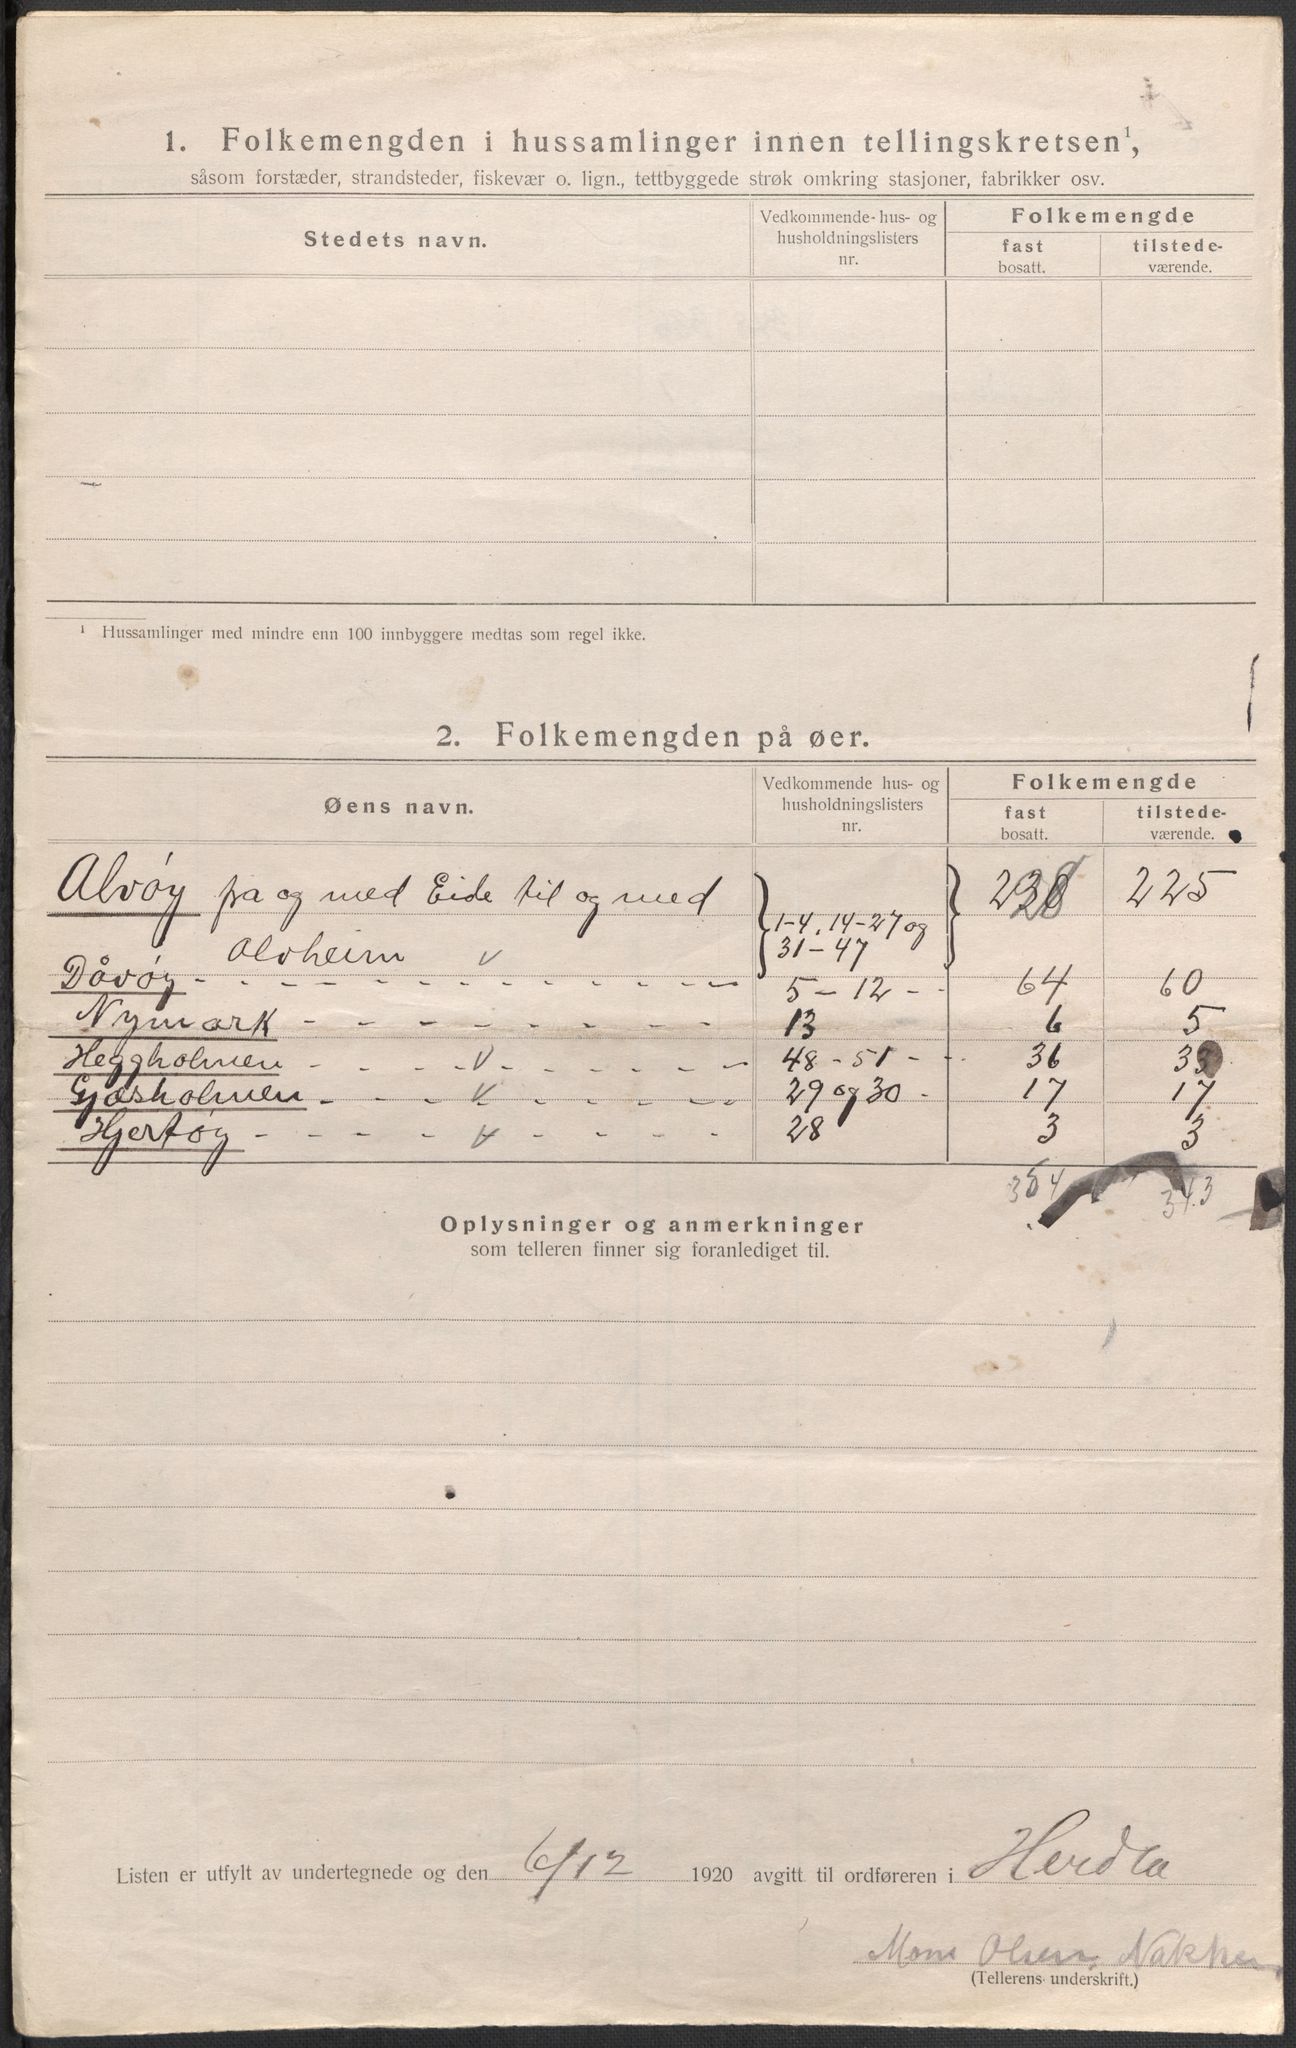 1. Folkemengden i hussamlinger innen tellingskretsen¹,
såsom forstæder, strandsteder, fiskevær o. lign., tettbyggede strøk omkring stasjoner, fabrikker osv.
Stedets navn.
Vedkommende hus- og
husholdningslisters
nr.
Folkemengde
fast
bosatt.
tilstede-
værende.
¹ Hussamlinger med mindre enn 100 innbyggere medtas som regel ikke.
2. Folkemengden på øer.
Øens navn.
Vedkommende hus- og
husholdningslisters
nr.
Folkemengde
fast
bosatt.
tilstede-
værende.
Alvöy fra og med Eide til og med 225
Alvheim 1-4, 14-27 og
31-47
Dåvöy - - - 5 - 12 - - 64 60
Nymark - - - 13 6 5
Heggholmen - - - 48 - 51 - - 36 33
Gjæsholmen - - - 29 og 30 - 17 17
Hjertöy - - - 28 3 3
354 343
Oplysninger og anmerkninger
som telleren finner sig foranlediget til.
Listen er utfylt av undertegnede og den 6/12 1920 avgitt til ordføreren i Herdla
Mons Olsen, Nakken
(Tellerens underskrift.)